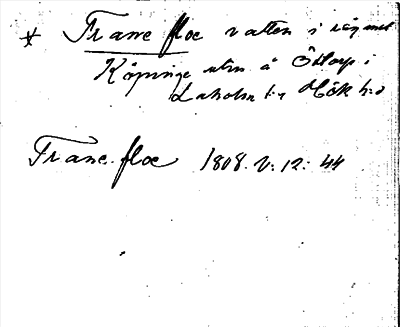 * Trane floe vatten i rågånet
Köpinge utm å Östorp i
Laholm l:s Hök h:d
Trane.floe 1808. V: 12: 44